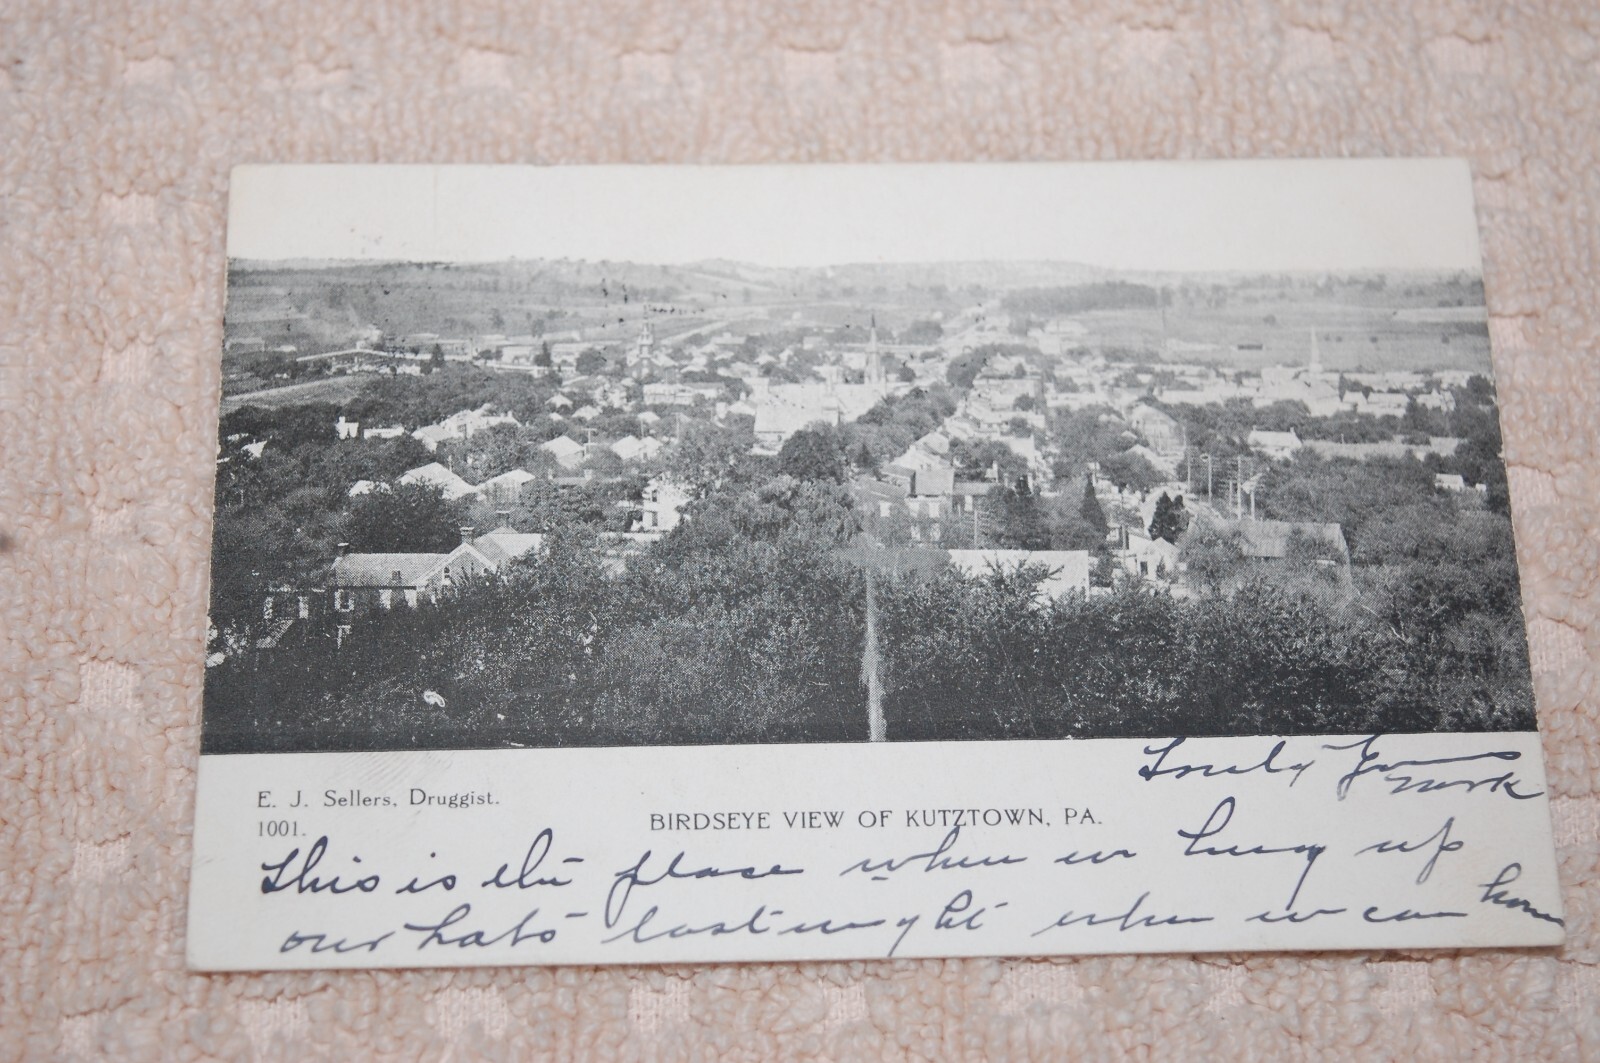 Truly Yours
E. J. Sellers, Druggist.
1001.
BIRDSEYE VIEW OF KUTZTOWN, PA.
This is the place when we hung up
our hats last night when we com home